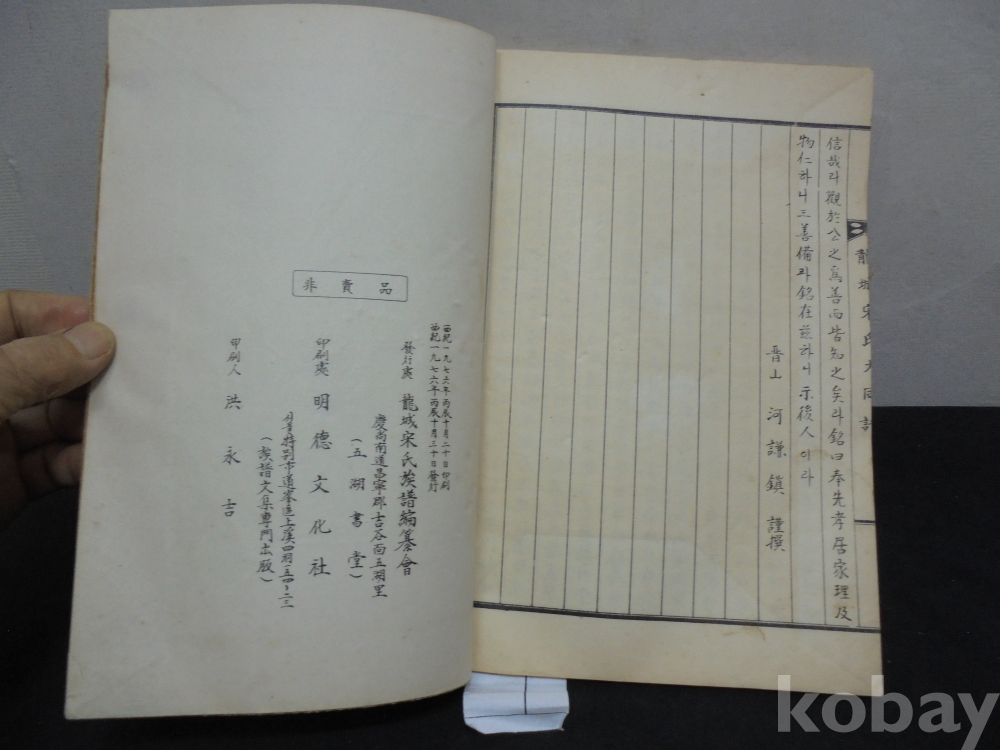 信哉라觀於公之爲善而皆知之矣라銘曰奉先孝居家理及
物仁하니三善備라銘在玆하니示後人이라
晋山 河謙鎭 謹撰
龍城宋氏大同譜
非賣品
西紀一九七六年丙辰十月二十日印刷
西紀一九七六年丙辰十月三十日發行
發行處 龍城宋氏族譜編纂會
慶尙南道昌寧郡吉谷面五湖里
(五湖書堂)
印刷處 明德文化社
서울特別市道峯區上溪四洞一五四-二三
(族譜文集專門出版)
印刷人 洪永吉
kobay